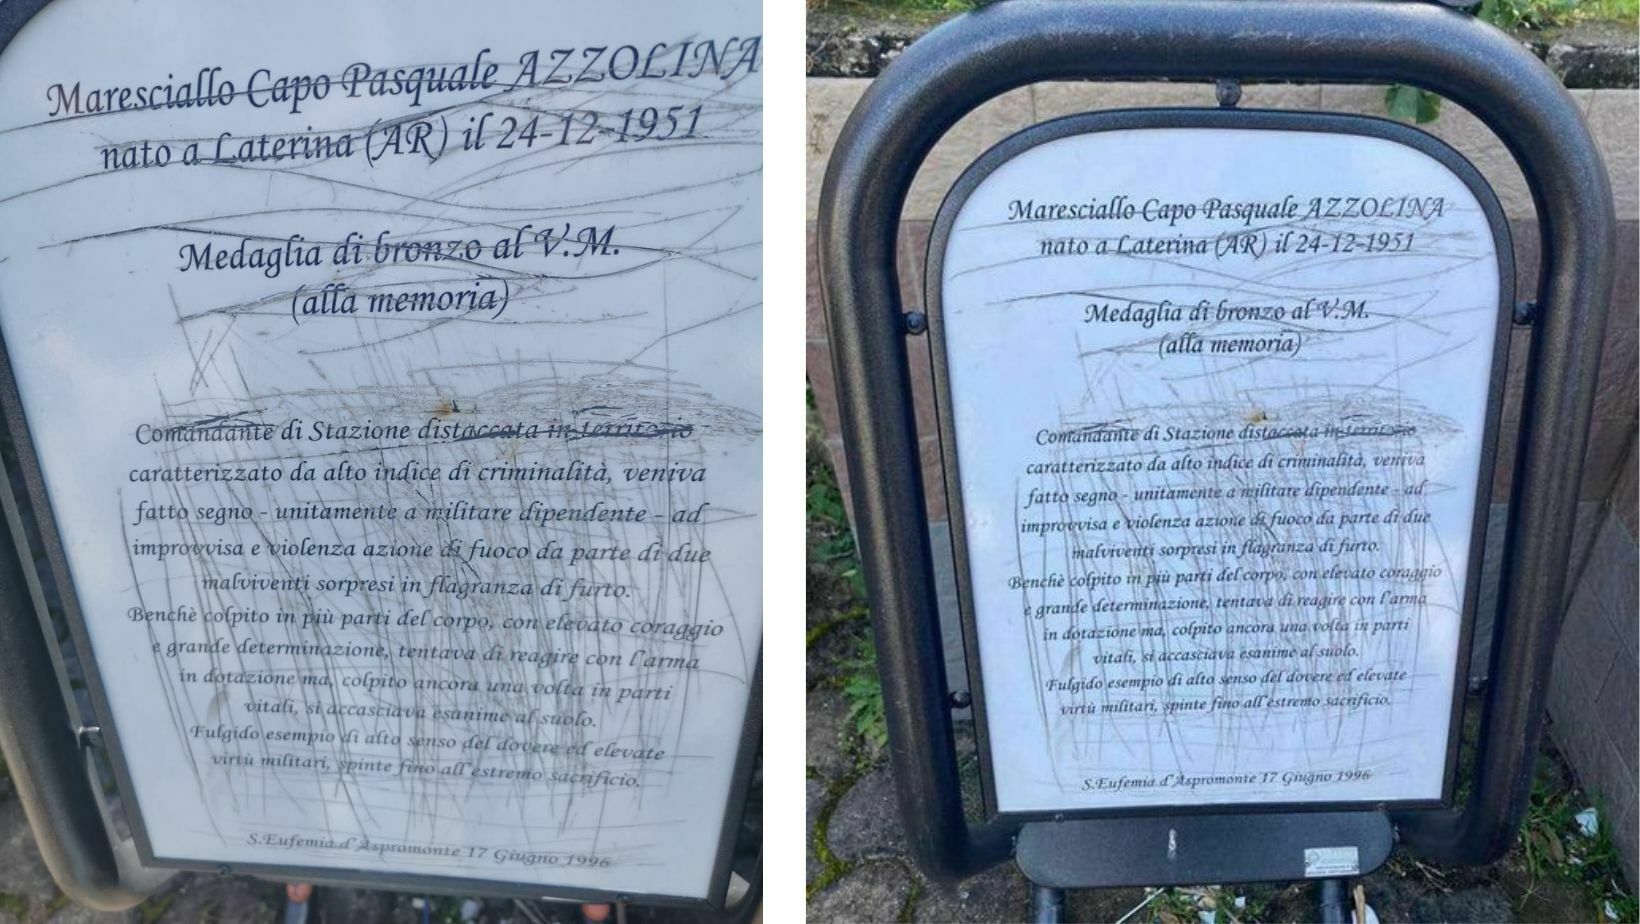 Maresciallo Capo Pasquale AZZOLINA
nato a Laterina (AR) il 24-12-1951
Medaglia di bronzo al V.M.
(alla memoria)
Comandante di Stazione distaccata in territorio
caratterizzato da alto indice di criminalità, veniva
fatto segno - unitamente a militare dipendente - ad
improvvisa e violenza azione di fuoco da parte di due
malviventi sorpresi in flagranza di furto.
Benchè colpito in più parti del corpo, con elevato coraggio
e grande determinazione, tentava di reagire con l'arma
in dotazione ma, colpito ancora una volta in parti
vitali, si accasciava esanime al suolo.
Fulgido esempio di alto senso del dovere ed elevate
virtù militari, spinte fino all'estremo sacrificio.
S.Eufemia d'Aspromonte 17 Giugno 1996
Maresciallo Capo Pasquale AZZOLINA
nato a Laterina (AR) il 24-12-1951
Medaglia di bronzo al V.M.
(alla memoria)
Comandante di Stazione distaccata in territorio
caratterizzato da alto indice di criminalità, veniva
fatto segno - unitamente a militare dipendente - ad
improvvisa e violenza azione di fuoco da parte di due
malviventi sorpresi in flagranza di furto.
Benchè colpito in più parti del corpo, con elevato coraggio
e grande determinazione, tentava di reagire con l'arma
in dotazione ma, colpito ancora una volta in parti
vitali, si accasciava esanime al suolo.
Fulgido esempio di alto senso del dovere ed elevate
virtù militari, spinte fino all'estremo sacrificio.
S.Eufemia d'Aspromonte 17 Giugno 1996